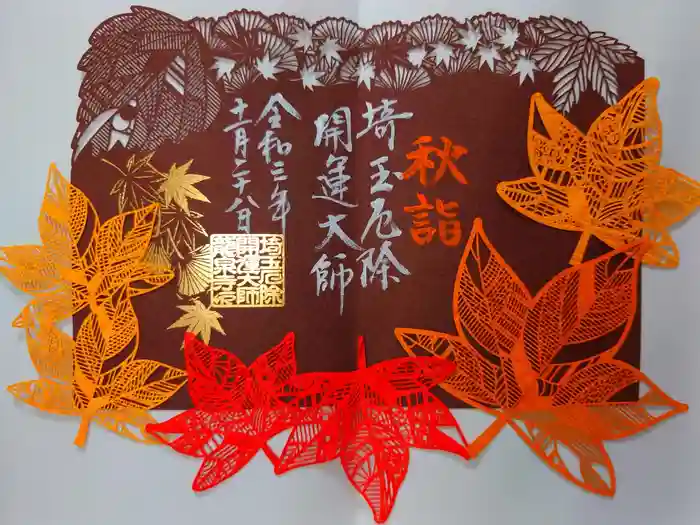 秋詣
埼玉厄除
開運大師
令和三年
十一月二十八日
埼玉厄除
開運大師
龍泉寺印